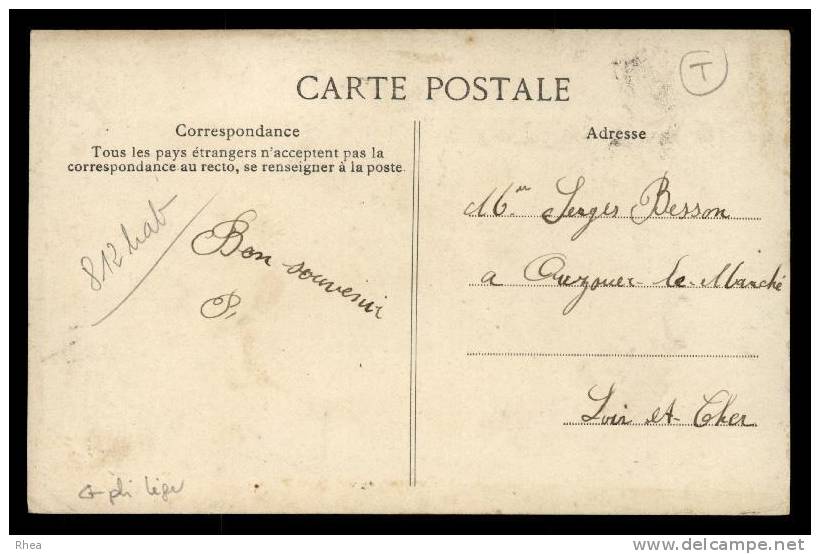 T
CARTE POSTALE
Correspondance
Tous les pays étrangers n'acceptent pas la
correspondance au recto, se renseigner à la poste.
812 hab
Bon souvenir
P.
+ pli léger
Adresse
Mr Serges Besson
a Ouzouer-le-Marché
Loir et-Cher
Rhea
www.delcampe.net